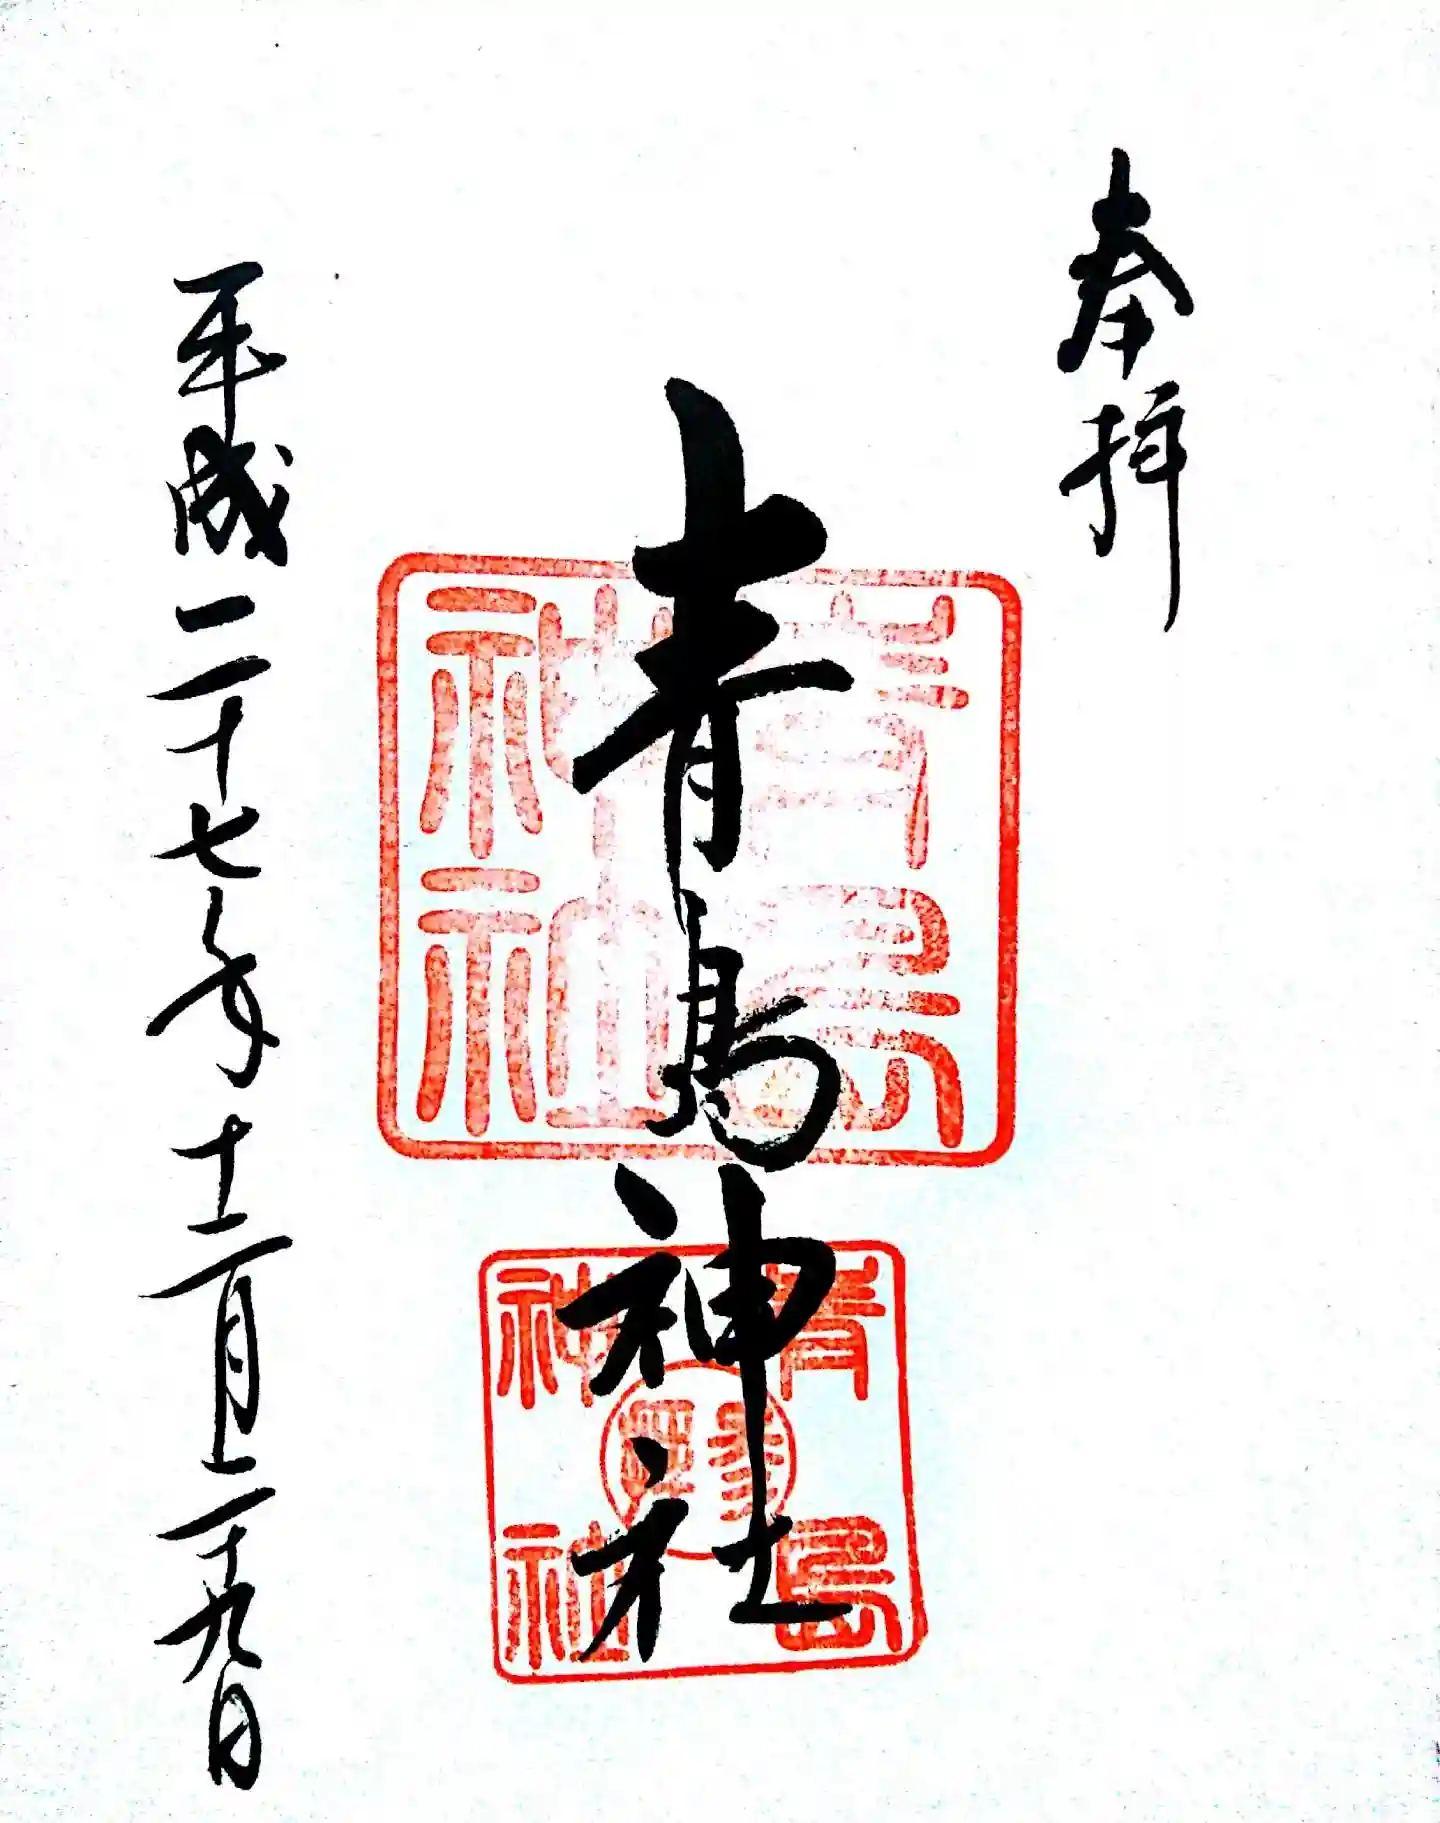 奉拝
青島神社
平成二十七年十二月二十九日
青島
神社
青島
神社